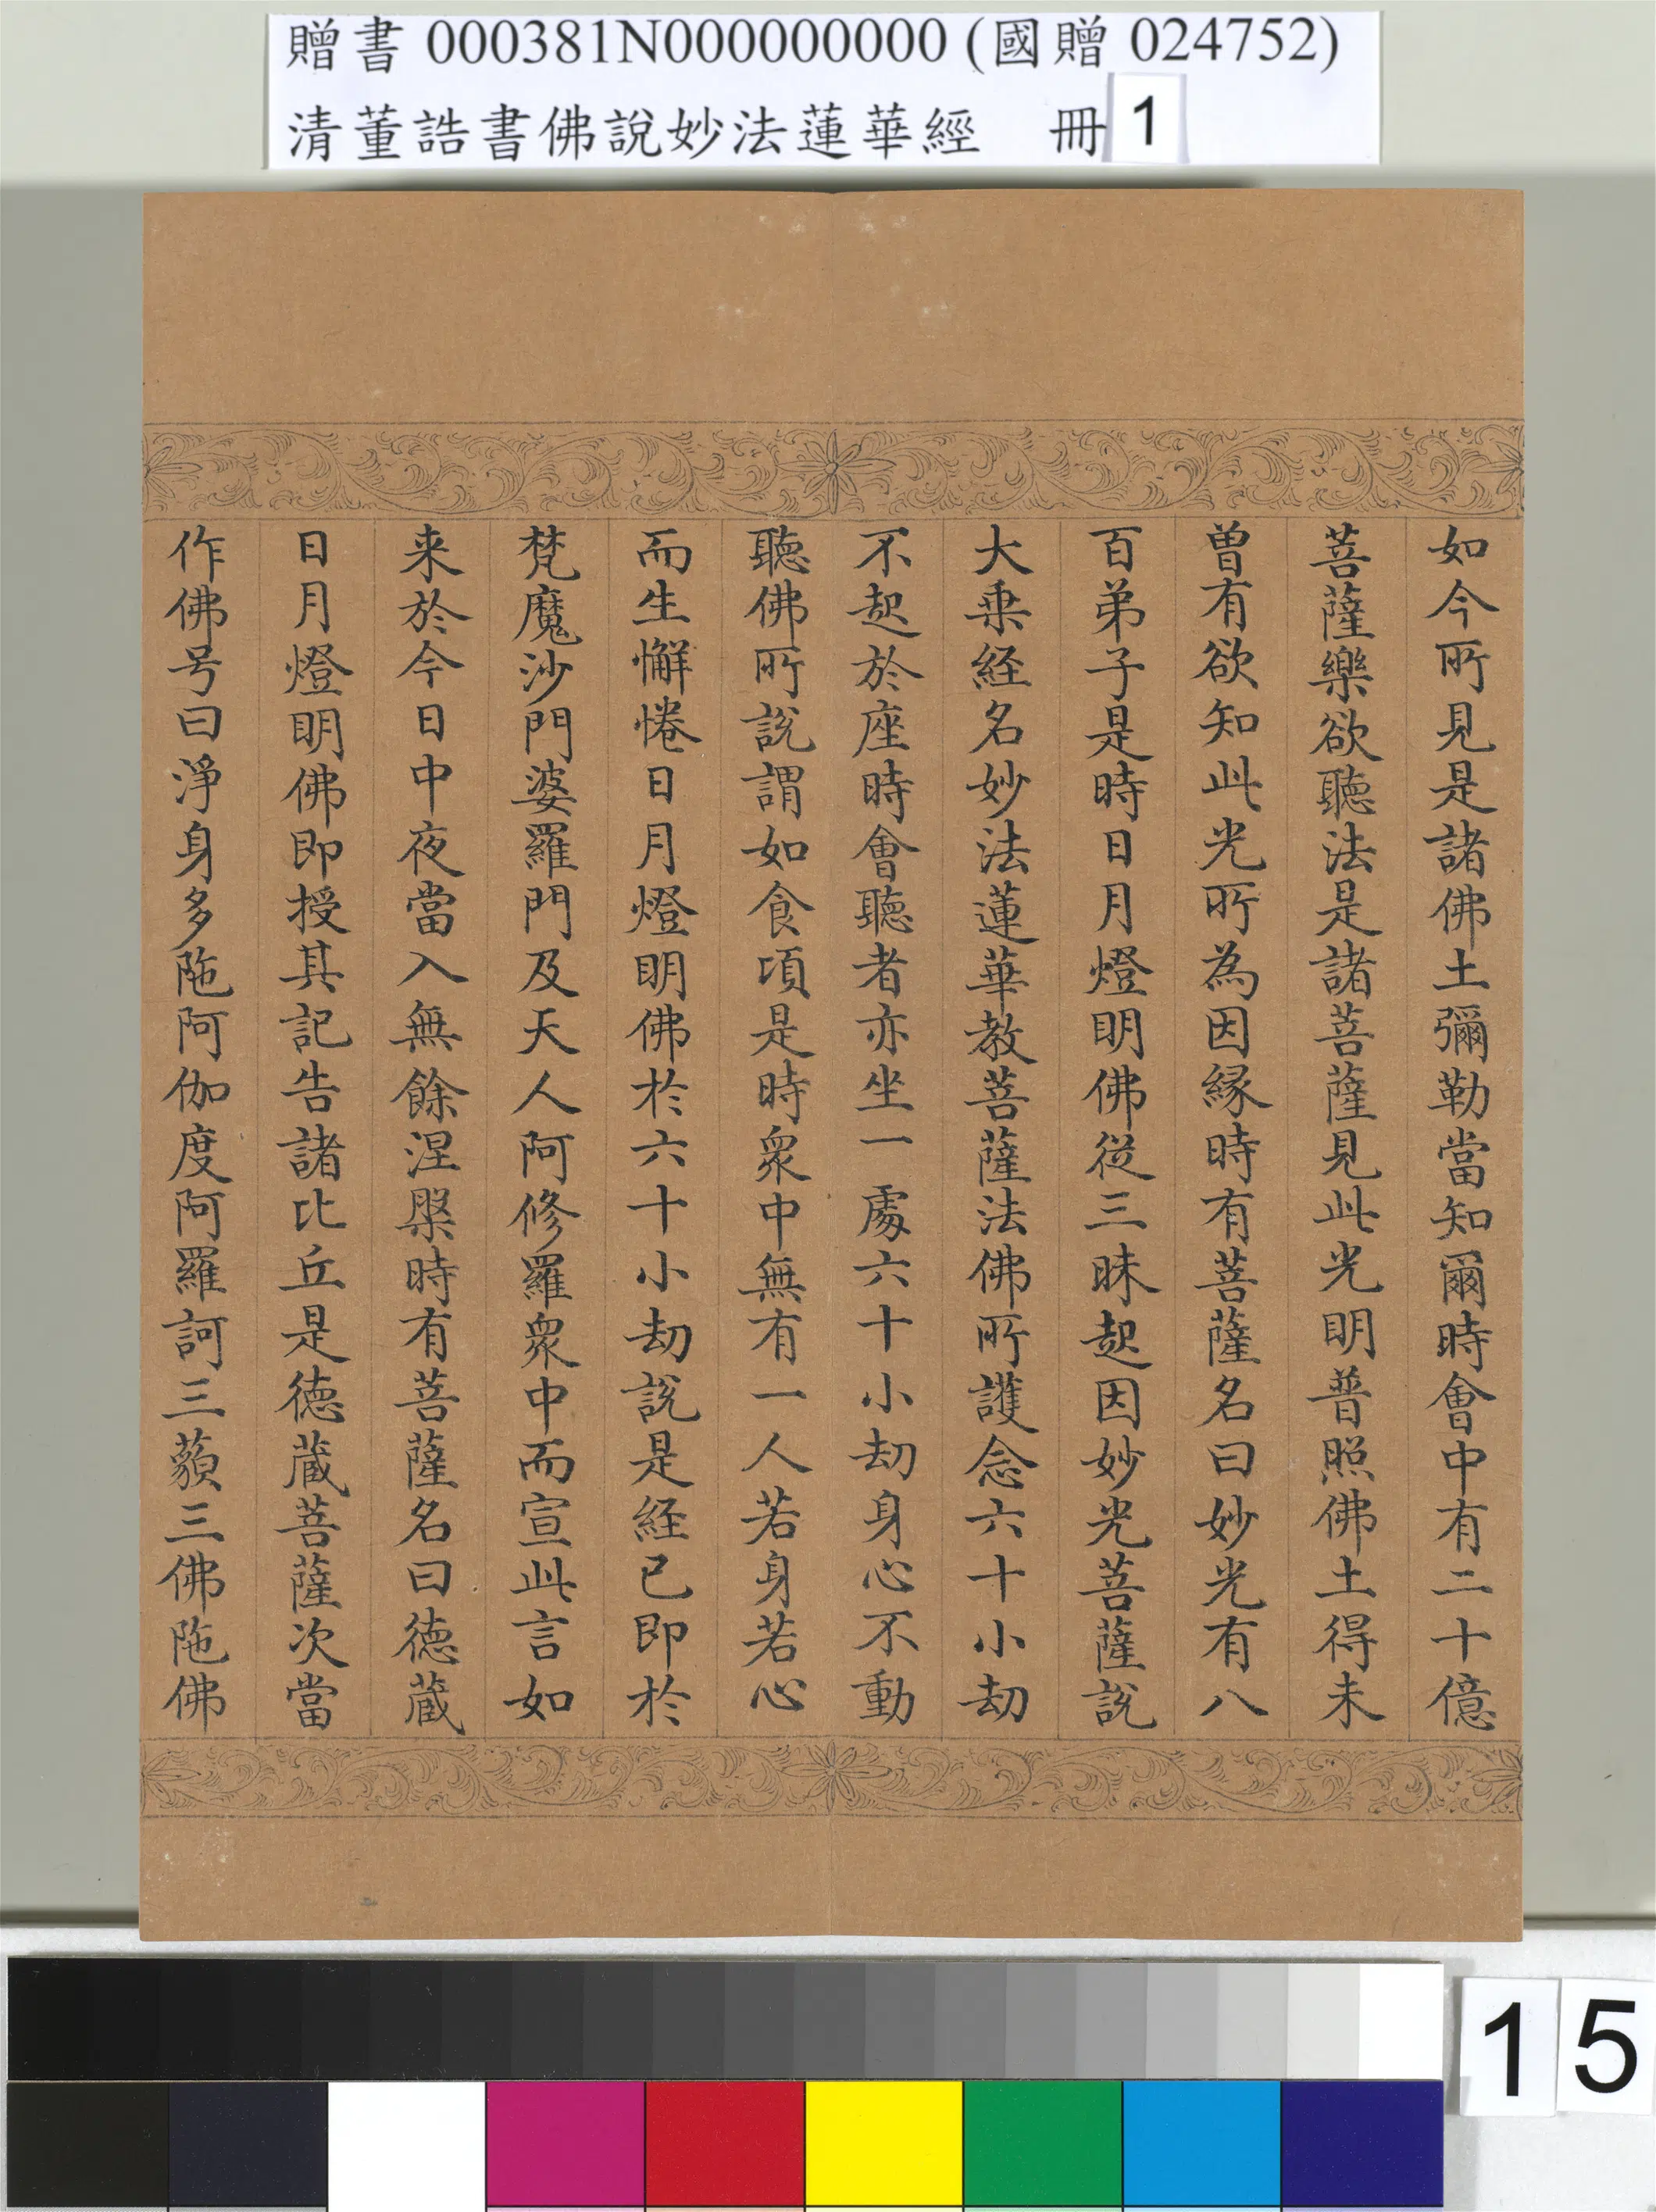 贈書 000381N000000000 (國贈 024752)
清董誥書佛說妙法蓮華經 冊 1
如今所見是諸佛土彌勒當知爾時會中有二十億
菩薩樂欲聽法是諸菩薩見此光明普照佛土得未
曽有欲知此光所為因縁時有菩薩名曰妙光有八
百弟子是時日月燈明佛從三昧起因妙光菩薩說
大乗経名妙法蓮華教菩薩法佛所護念六十小劫
不起於座時會聽者亦坐一處六十小劫身心不動
聽佛所說謂如食頃是時衆中無有一人若身若心
而生懈惓日月燈明佛於六十小劫說是経已即於
梵魔沙門婆羅門及天人阿修羅衆中而宣此言如
来於今日中夜當入無餘涅槃時有菩薩名曰徳蔵
日月燈明佛即授其記告諸比丘是徳蔵菩薩次當
作佛号曰淨身多陁阿伽度阿羅訶三藐三佛陁佛
15